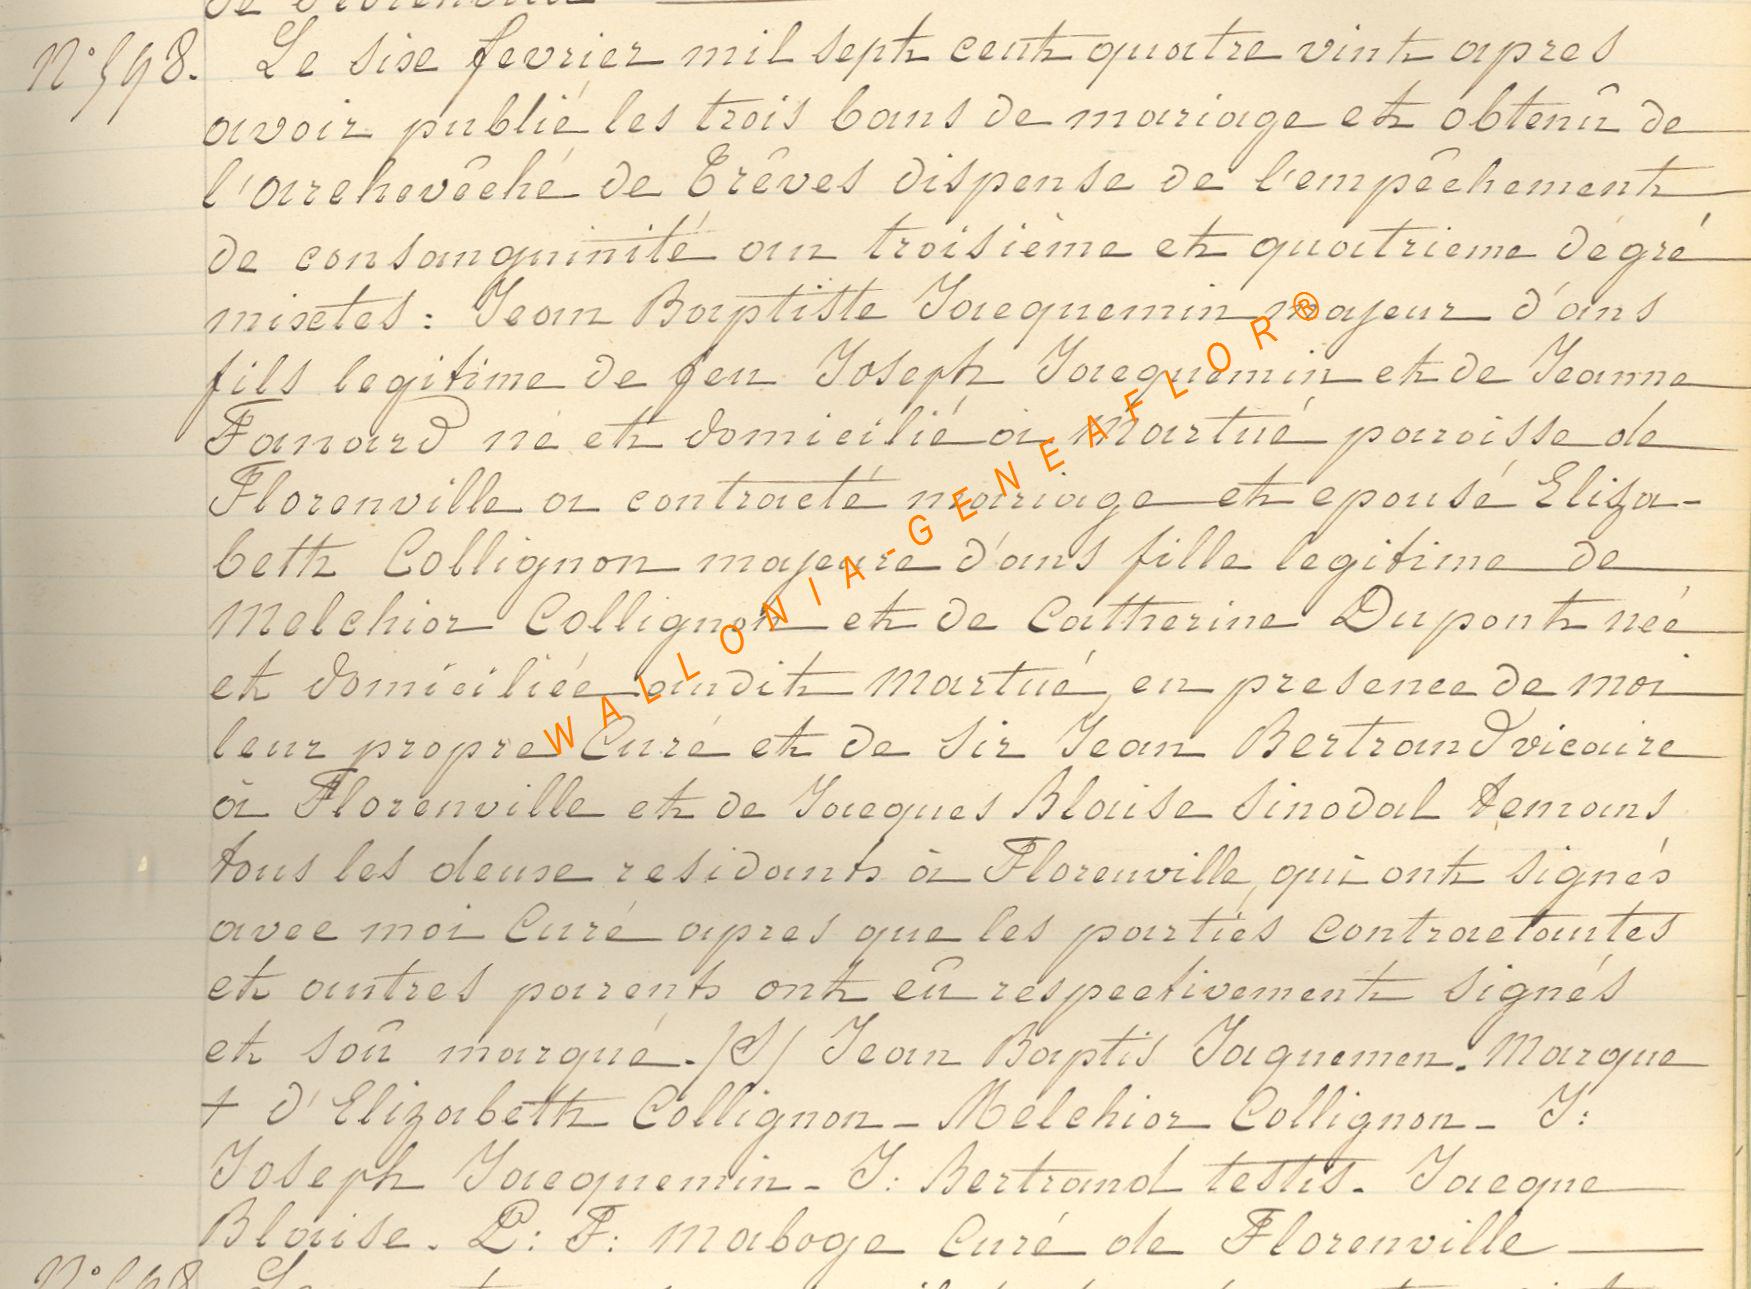 de Florenville
N° 598. Le six fevrier mil sept cent quatre vint apres
avoir publié les trois bans de mariage et obtenû de
l'archevêché de Trêves dispense de l'empêchement
de consanguinité au troisième et quatrieme dégré
mixtes : Jean Baptiste Jacquemin majeur d'ans
fils legitime de feu Joseph Jacquemin et de Jeanne
Fanard né et domicilié à Martué paroisse de
Florenville a contracté mariage et epousé Eliza-
beth Collignon majeure d'ans fille legitime de
Melchior Collignon et de Catherine Dupont née
et domiciliée audit Martué, en presence de moi
leur propre Curé et de sir Jean Bertrand vicaire
à Florenville et de Jacques Blaise sinodal temans
tous les deux residants à Florenville, qui ont signés
avec moi Curé apres que les parties contractantes
et autres parents ont eû respectivement signés
et soû marqué. /S/ Jean Baptis Jaquemen. Marque
+ d'Elizabeth Collignon - Melchior Collignon - J:
Joseph Jacquemin - J: Bertrand testis. Jacque
Blaise. P: F: Maboge Curé de Florenville
WALLONIA-GENEAFLOR®